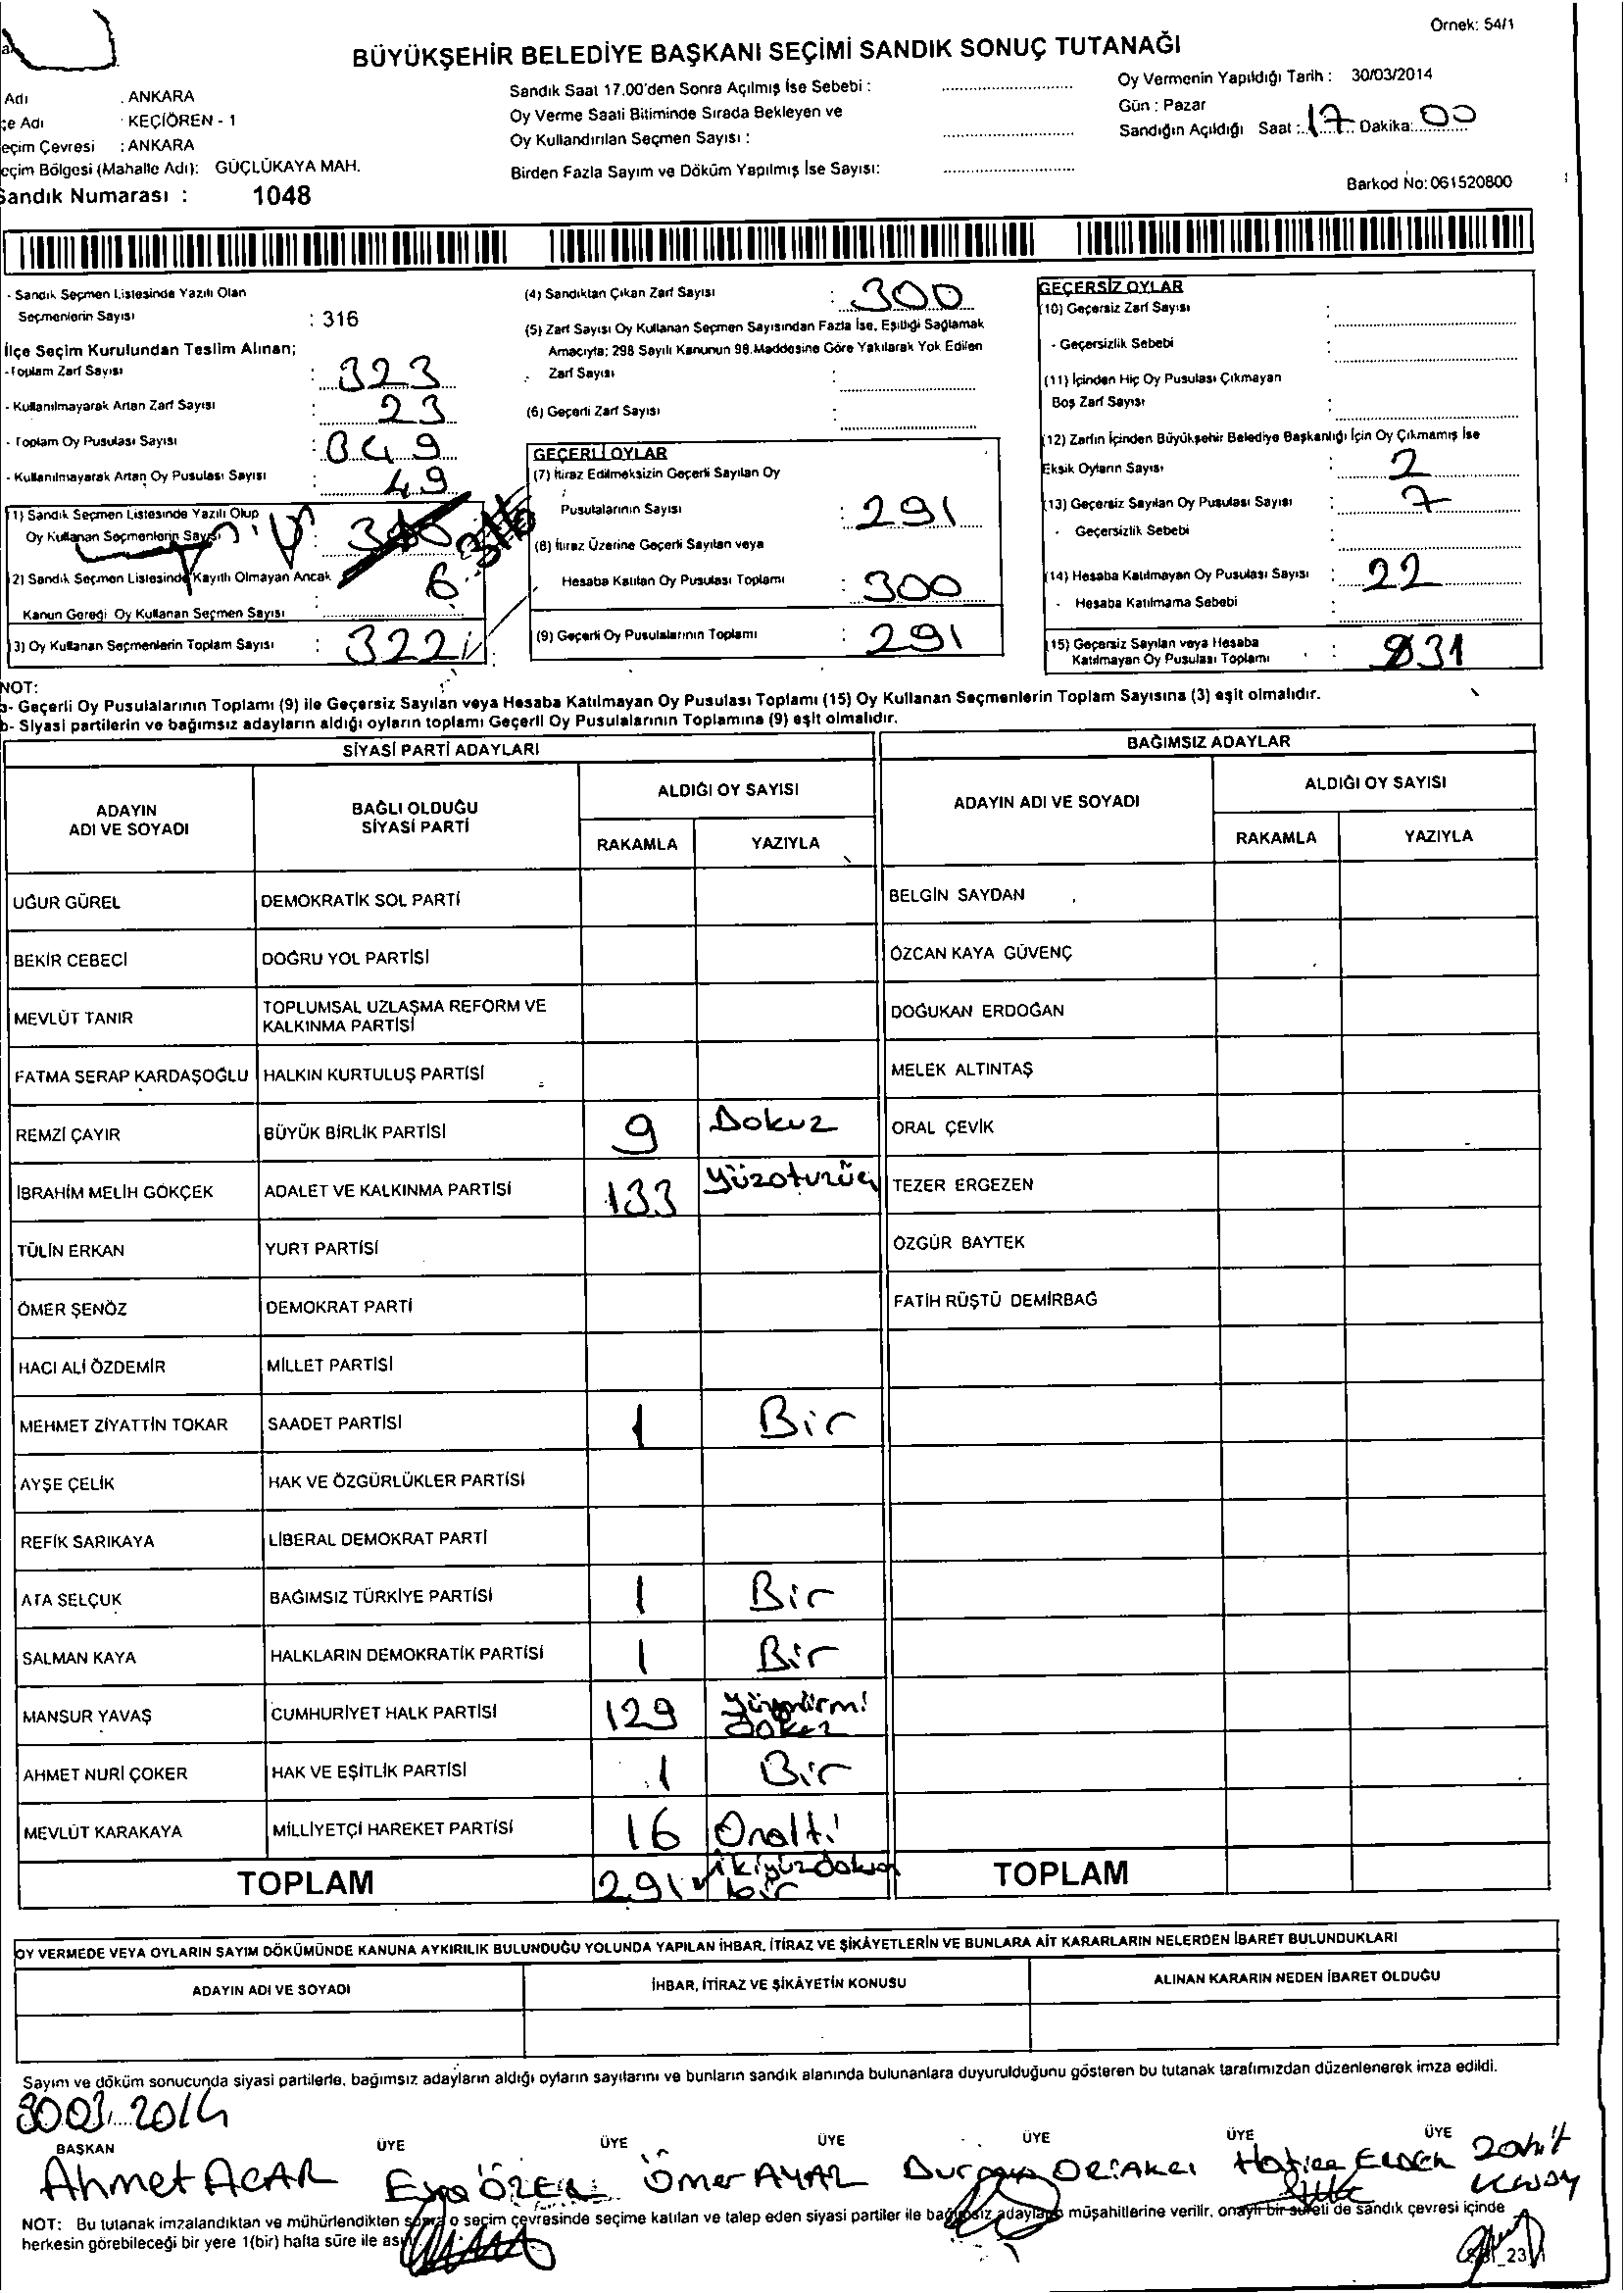 Örnek: 54/1
BÜYÜKŞEHİR BELEDİYE BAŞKANI SEÇİMİ SANDIK SONUÇ TUTANAĞI
Adı : ANKARA
çe Adı : KEÇİÖREN - 1
eçim Çevresi : ANKARA
eçim Bölgesi (Mahalle Adı): GÜÇLÜKAYA MAH.
Sandık Numarası : 1048
Sandık Saat 17.00'den Sonra Açılmış İse Sebebi :
Oy Verme Saati Bitiminde Sırada Bekleyen ve
Oy Kullandırılan Seçmen Sayısı :
Birden Fazla Sayım ve Döküm Yapılmış İse Sayısı:
Oy Vermenin Yapıldığı Tarih : 30/03/2014
Gün : Pazar
Sandığın Açıldığı Saat : 17 Dakika: 00
Barkod No: 061520800
- Sandık Seçmen Listesinde Yazılı Olan
Seçmenlerin Sayısı : 316
İlçe Seçim Kurulundan Teslim Alınan;
- Toplam Zarf Sayısı : 323
- Kullanılmayarak Artan Zarf Sayısı : 23
- Toplam Oy Pusulası Sayısı : 349
- Kullanılmayarak Artan Oy Pusulası Sayısı : 49
(1) Sandık Seçmen Listesinde Yazılı Olup
Oy Kullanan Seçmenlerin Sayısı : 316
(2) Sandık Seçmen Listesinde Kayıtlı Olmayan Ancak
Kanun Gereği Oy Kullanan Seçmen Sayısı : 6
(3) Oy Kullanan Seçmenlerin Toplam Sayısı : 322
(4) Sandıktan Çıkan Zarf Sayısı : 300
(5) Zarf Sayısı Oy Kullanan Seçmen Sayısından Fazla İse, Eşitliği Sağlamak
Amacıyla; 298 Sayılı Kanunun 98.Maddesine Göre Yakılarak Yok Edilen
Zarf Sayısı :
(6) Geçerli Zarf Sayısı :
GEÇERLİ OYLAR
(7) İtiraz Edilmeksizin Geçerli Sayılan Oy
Pusulalarının Sayısı : 291
(8) İtiraz Üzerine Geçerli Sayılan veya
Hesaba Katılan Oy Pusulası Toplamı : 300
(9) Geçerli Oy Pusulalarının Toplamı : 291
GEÇERSİZ OYLAR
(10) Geçersiz Zarf Sayısı :
- Geçersizlik Sebebi :
(11) İçinden Hiç Oy Pusulası Çıkmayan
Boş Zarf Sayısı :
(12) Zarfın İçinden Büyükşehir Belediye Başkanlığı İçin Oy Çıkmamış İse
Eksik Oyların Sayısı : 2
(13) Geçersiz Sayılan Oy Pusulası Sayısı : 7
- Geçersizlik Sebebi :
(14) Hesaba Katılmayan Oy Pusulası Sayısı : 22
- Hesaba Katılmama Sebebi :
(15) Geçersiz Sayılan veya Hesaba
Katılmayan Oy Pusulası Toplamı : 31
NOT:
a- Geçerli Oy Pusulalarının Toplamı (9) ile Geçersiz Sayılan veya Hesaba Katılmayan Oy Pusulası Toplamı (15) Oy Kullanan Seçmenlerin Toplam Sayısına (3) eşit olmalıdır.
b- Siyasi partilerin ve bağımsız adayların aldığı oyların toplamı Geçerli Oy Pusulalarının Toplamına (9) eşit olmalıdır.
SİYASİ PARTİ ADAYLARI BAĞIMSIZ ADAYLAR
ADAYIN ADI VE SOYADI BAĞLI OLDUĞU SİYASİ PARTİ ALDIĞI OY SAYISI ADAYIN ADI VE SOYADI ALDIĞI OY SAYISI
RAKAMLA YAZIYLA RAKAMLA YAZIYLA
UĞUR GÜREL DEMOKRATİK SOL PARTİ BELGİN SAYDAN
BEKİR CEBECİ DOĞRU YOL PARTİSİ ÖZCAN KAYA GÜVENÇ
MEVLÜT TANIR TOPLUMSAL UZLAŞMA REFORM VE KALKINMA PARTİSİ DOĞUKAN ERDOĞAN
FATMA SERAP KARDAŞOĞLU HALKIN KURTULUŞ PARTİSİ MELEK ALTINTAŞ
REMZİ ÇAYIR BÜYÜK BİRLİK PARTİSİ 9 Dokuz ORAL ÇEVİK
İBRAHİM MELİH GÖKÇEK ADALET VE KALKINMA PARTİSİ 133 Yüzotuzüç TEZER ERGEZEN
TÜLİN ERKAN YURT PARTİSİ ÖZGÜR BAYTEK
ÖMER ŞENÖZ DEMOKRAT PARTİ FATİH RÜŞTÜ DEMİRBAĞ
HACI ALİ ÖZDEMİR MİLLET PARTİSİ
MEHMET ZİYATTİN TOKAR SAADET PARTİSİ 1 Bir
AYŞE ÇELİK HAK VE ÖZGÜRLÜKLER PARTİSİ
REFİK SARIKAYA LİBERAL DEMOKRAT PARTİ
ATA SELÇUK BAĞIMSIZ TÜRKİYE PARTİSİ 1 Bir
SALMAN KAYA HALKLARIN DEMOKRATİK PARTİSİ 1 Bir
MANSUR YAVAŞ CUMHURİYET HALK PARTİSİ 129 Yüzyirmi dokuz
AHMET NURİ ÇOKER HAK VE EŞİTLİK PARTİSİ 1 Bir
MEVLÜT KARAKAYA MİLLİYETÇİ HAREKET PARTİSİ 16 Onaltı
TOPLAM 291 ikiyüzdoksan bir TOPLAM
OY VERMEDE VEYA OYLARIN SAYIM DÖKÜMÜNDE KANUNA AYKIRILIK BULUNDUĞU YOLUNDA YAPILAN İHBAR, İTİRAZ VE ŞİKÂYETLERİN VE BUNLARA AİT KARARLARIN NELERDEN İBARET BULUNDUKLARI
ADAYIN ADI VE SOYADI İHBAR, İTİRAZ VE ŞİKÂYETİN KONUSU ALINAN KARARIN NEDEN İBARET OLDUĞU
Sayım ve döküm sonucunda siyasi partilerle, bağımsız adayların aldığı oyların sayılarını ve bunların sandık alanında bulunanlara duyurulduğunu gösteren bu tutanak tarafımızdan düzenlenerek imza edildi.
30.03.2014
BAŞKAN ÜYE ÜYE ÜYE ÜYE ÜYE ÜYE
Ahmet ACAR ÖZER Ömer AYAZ Hatice
NOT: Bu tutanak imzalandıktan ve mühürlendikten sonra o seçim çevresinde seçime katılan ve talep eden siyasi partiler ile bağımsız adayların müşahitlerine verilir, onaylı bir sureti de sandık çevresi içinde
herkesin görebileceği bir yere 1(bir) hafta süre ile